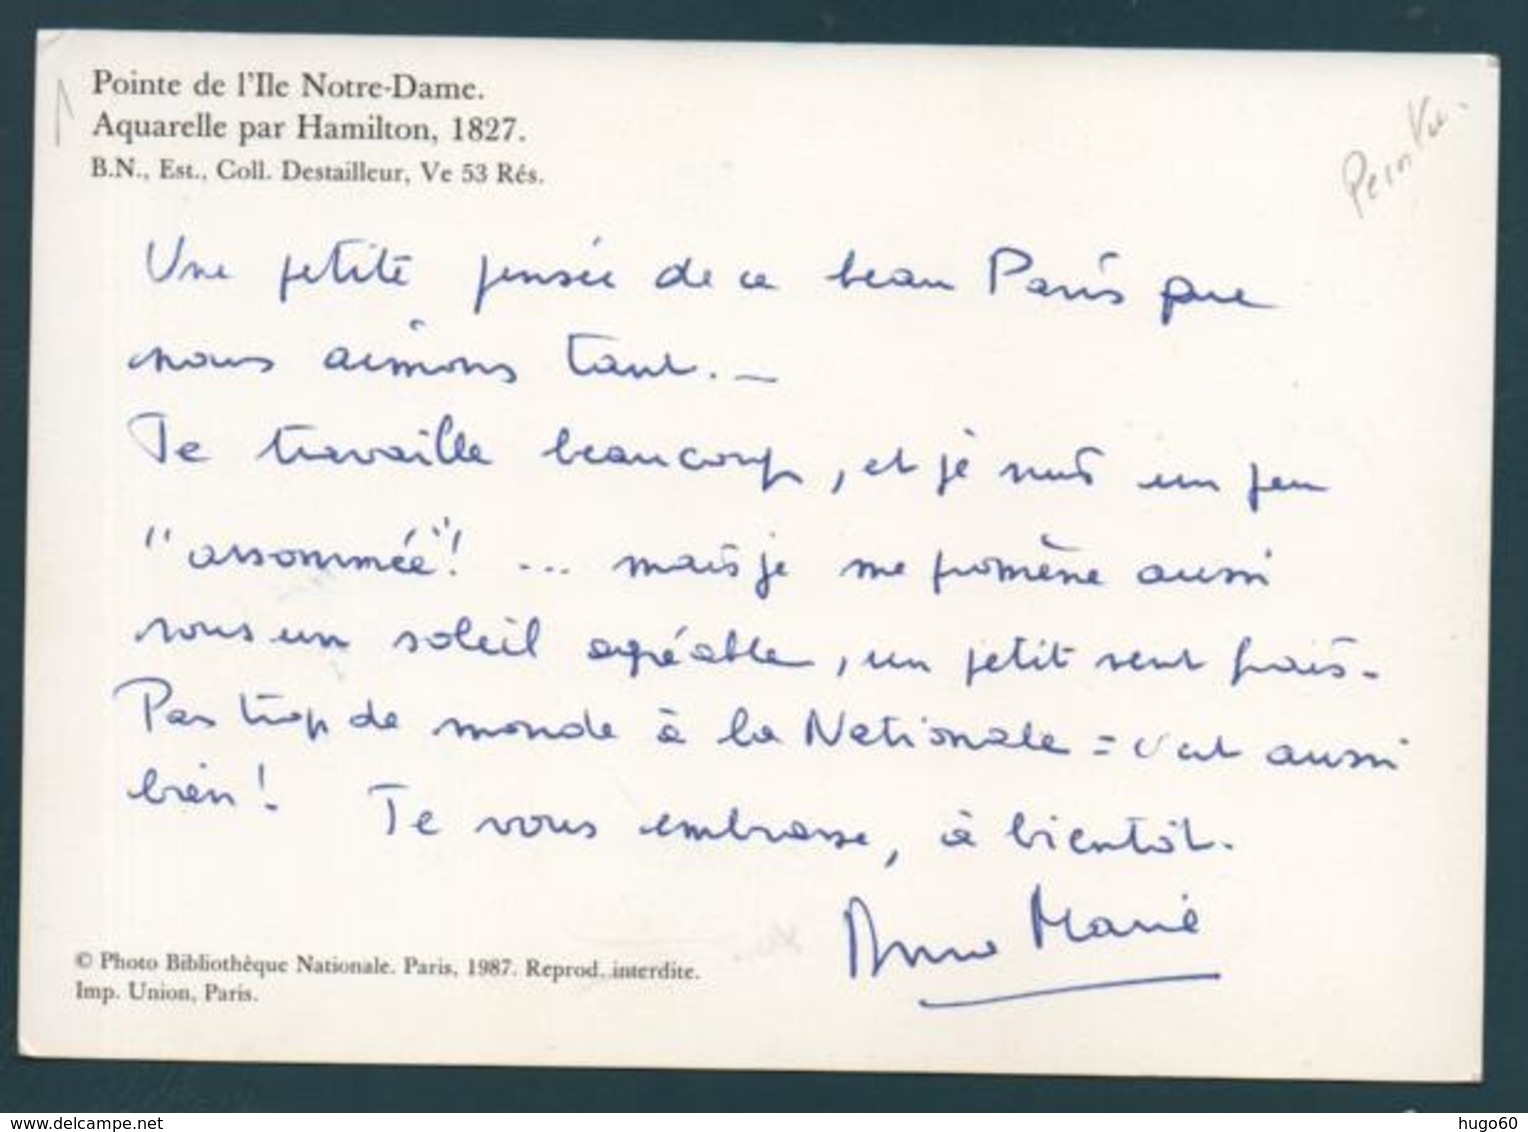 Pointe de l'Ile Notre-Dame.
Aquarelle par Hamilton, 1827.
B.N., Est., Coll. Destailleur, Ve 53 Rés.
Une petite pensée de ce beau Paris que
nous aimons tant. _
Je travaille beaucoup, et je suis un peu
"assommée"! ... mais je me promène aussi
sous un soleil agréable, un petit vent frais.
Pas trop de monde à la Nationale = c'est aussi
bien! Je vous embrasse, à bientôt.
Anne Marie
© Photo Bibliothèque Nationale. Paris, 1987. Reprod. interdite.
Imp. Union, Paris.
delcampe.net
hugo60